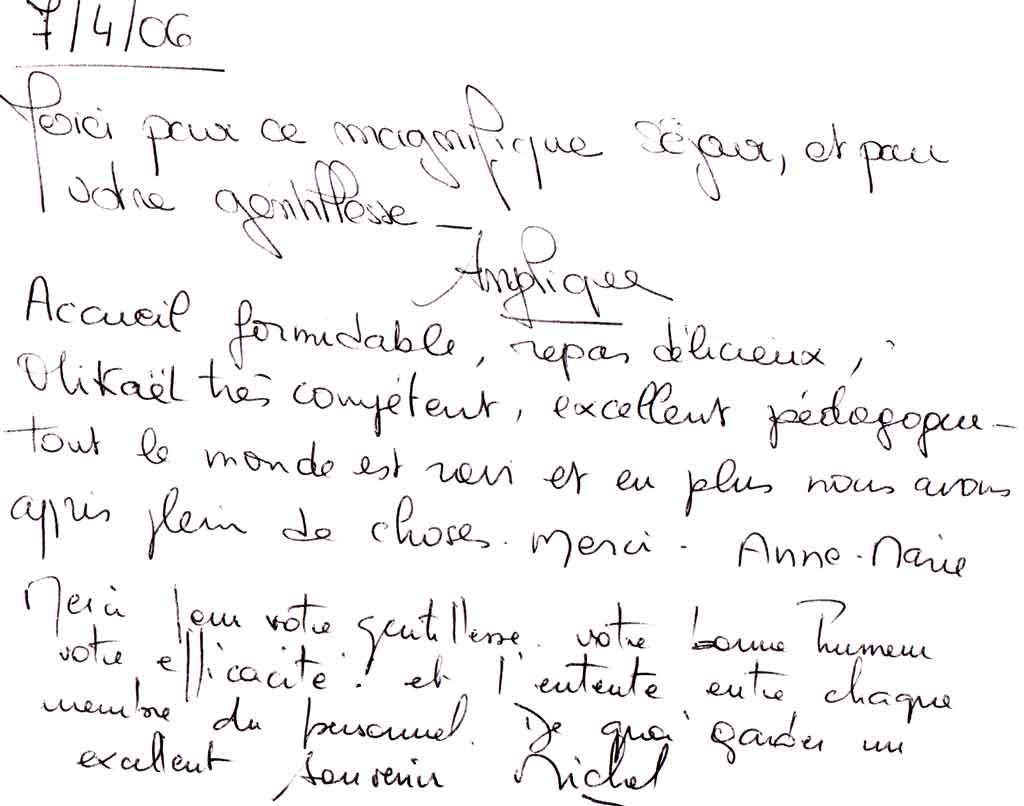 7/4/06
Merci pour ce magnifique séjour, et pour
votre gentillesse -
Angélique
Accueil formidable, repas délicieux,
Mikaël très compétent, excellent pédagogue -
tout le monde est ravi et en plus nous avons
appris plein de choses. Merci. Anne-Marie
Merci pour votre gentillesse. votre bonne humeur
votre efficacité. et l'entente entre chaque
membre du personnel. De quoi garder un
excellent souvenir Michel